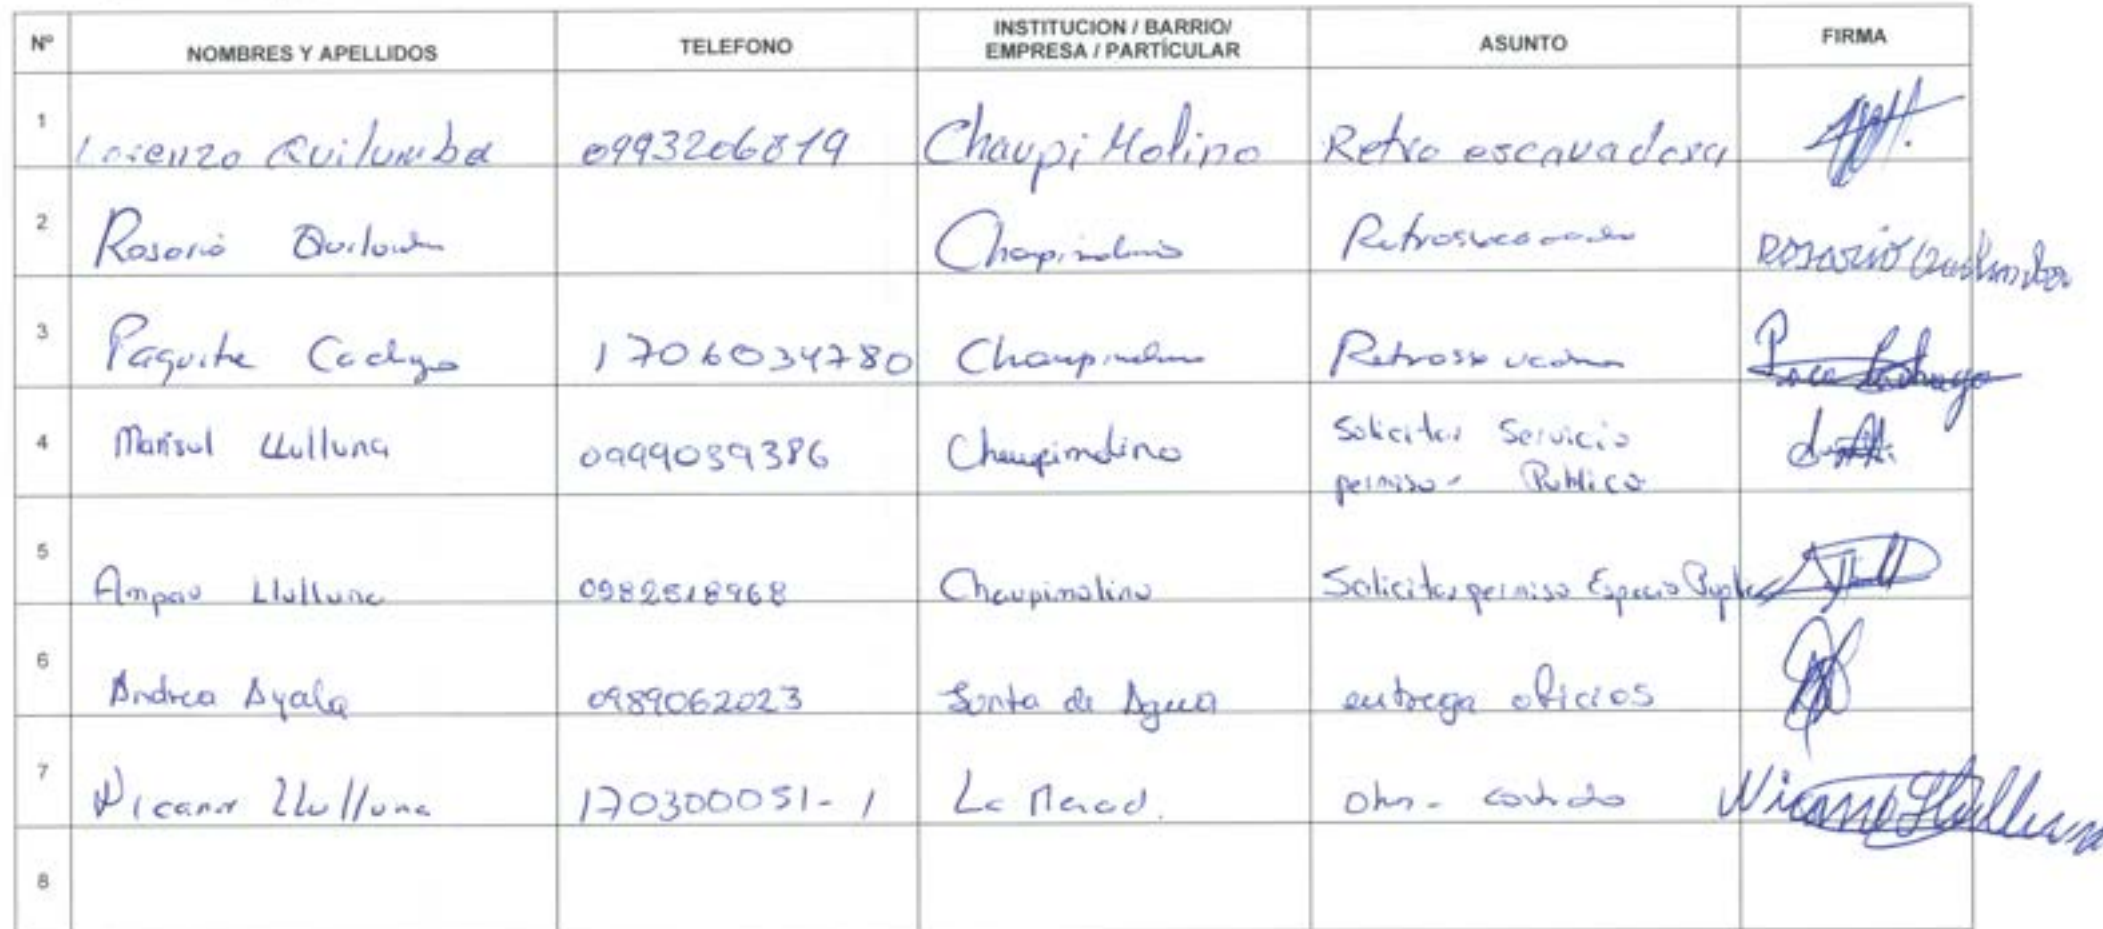 Nº NOMBRES Y APELLIDOS TELEFONO INSTITUCION / BARRIO/ EMPRESA / PARTÍCULAR ASUNTO FIRMA
1 Lorenzo Quilumba 0993206819 Chaupi Molino Retro escavadora
2 Rosario Chaupimolino rosario Quilumba
3 Paquita 1706034780 Chaupimolino
4 Marisol Llulluna 0999039386 Chaupimolino Solicitar Servicio
permiso - Publico
5 Amparo Llulluna 0982518968 Chaupimolino Solicitar permiso Espacio
6 Andrea Ayala 0989062023 Junta de Agua entrega oficios
7 Nicanor Llulluna 170300051-1 La Merced. Nicanor Llulluna
8